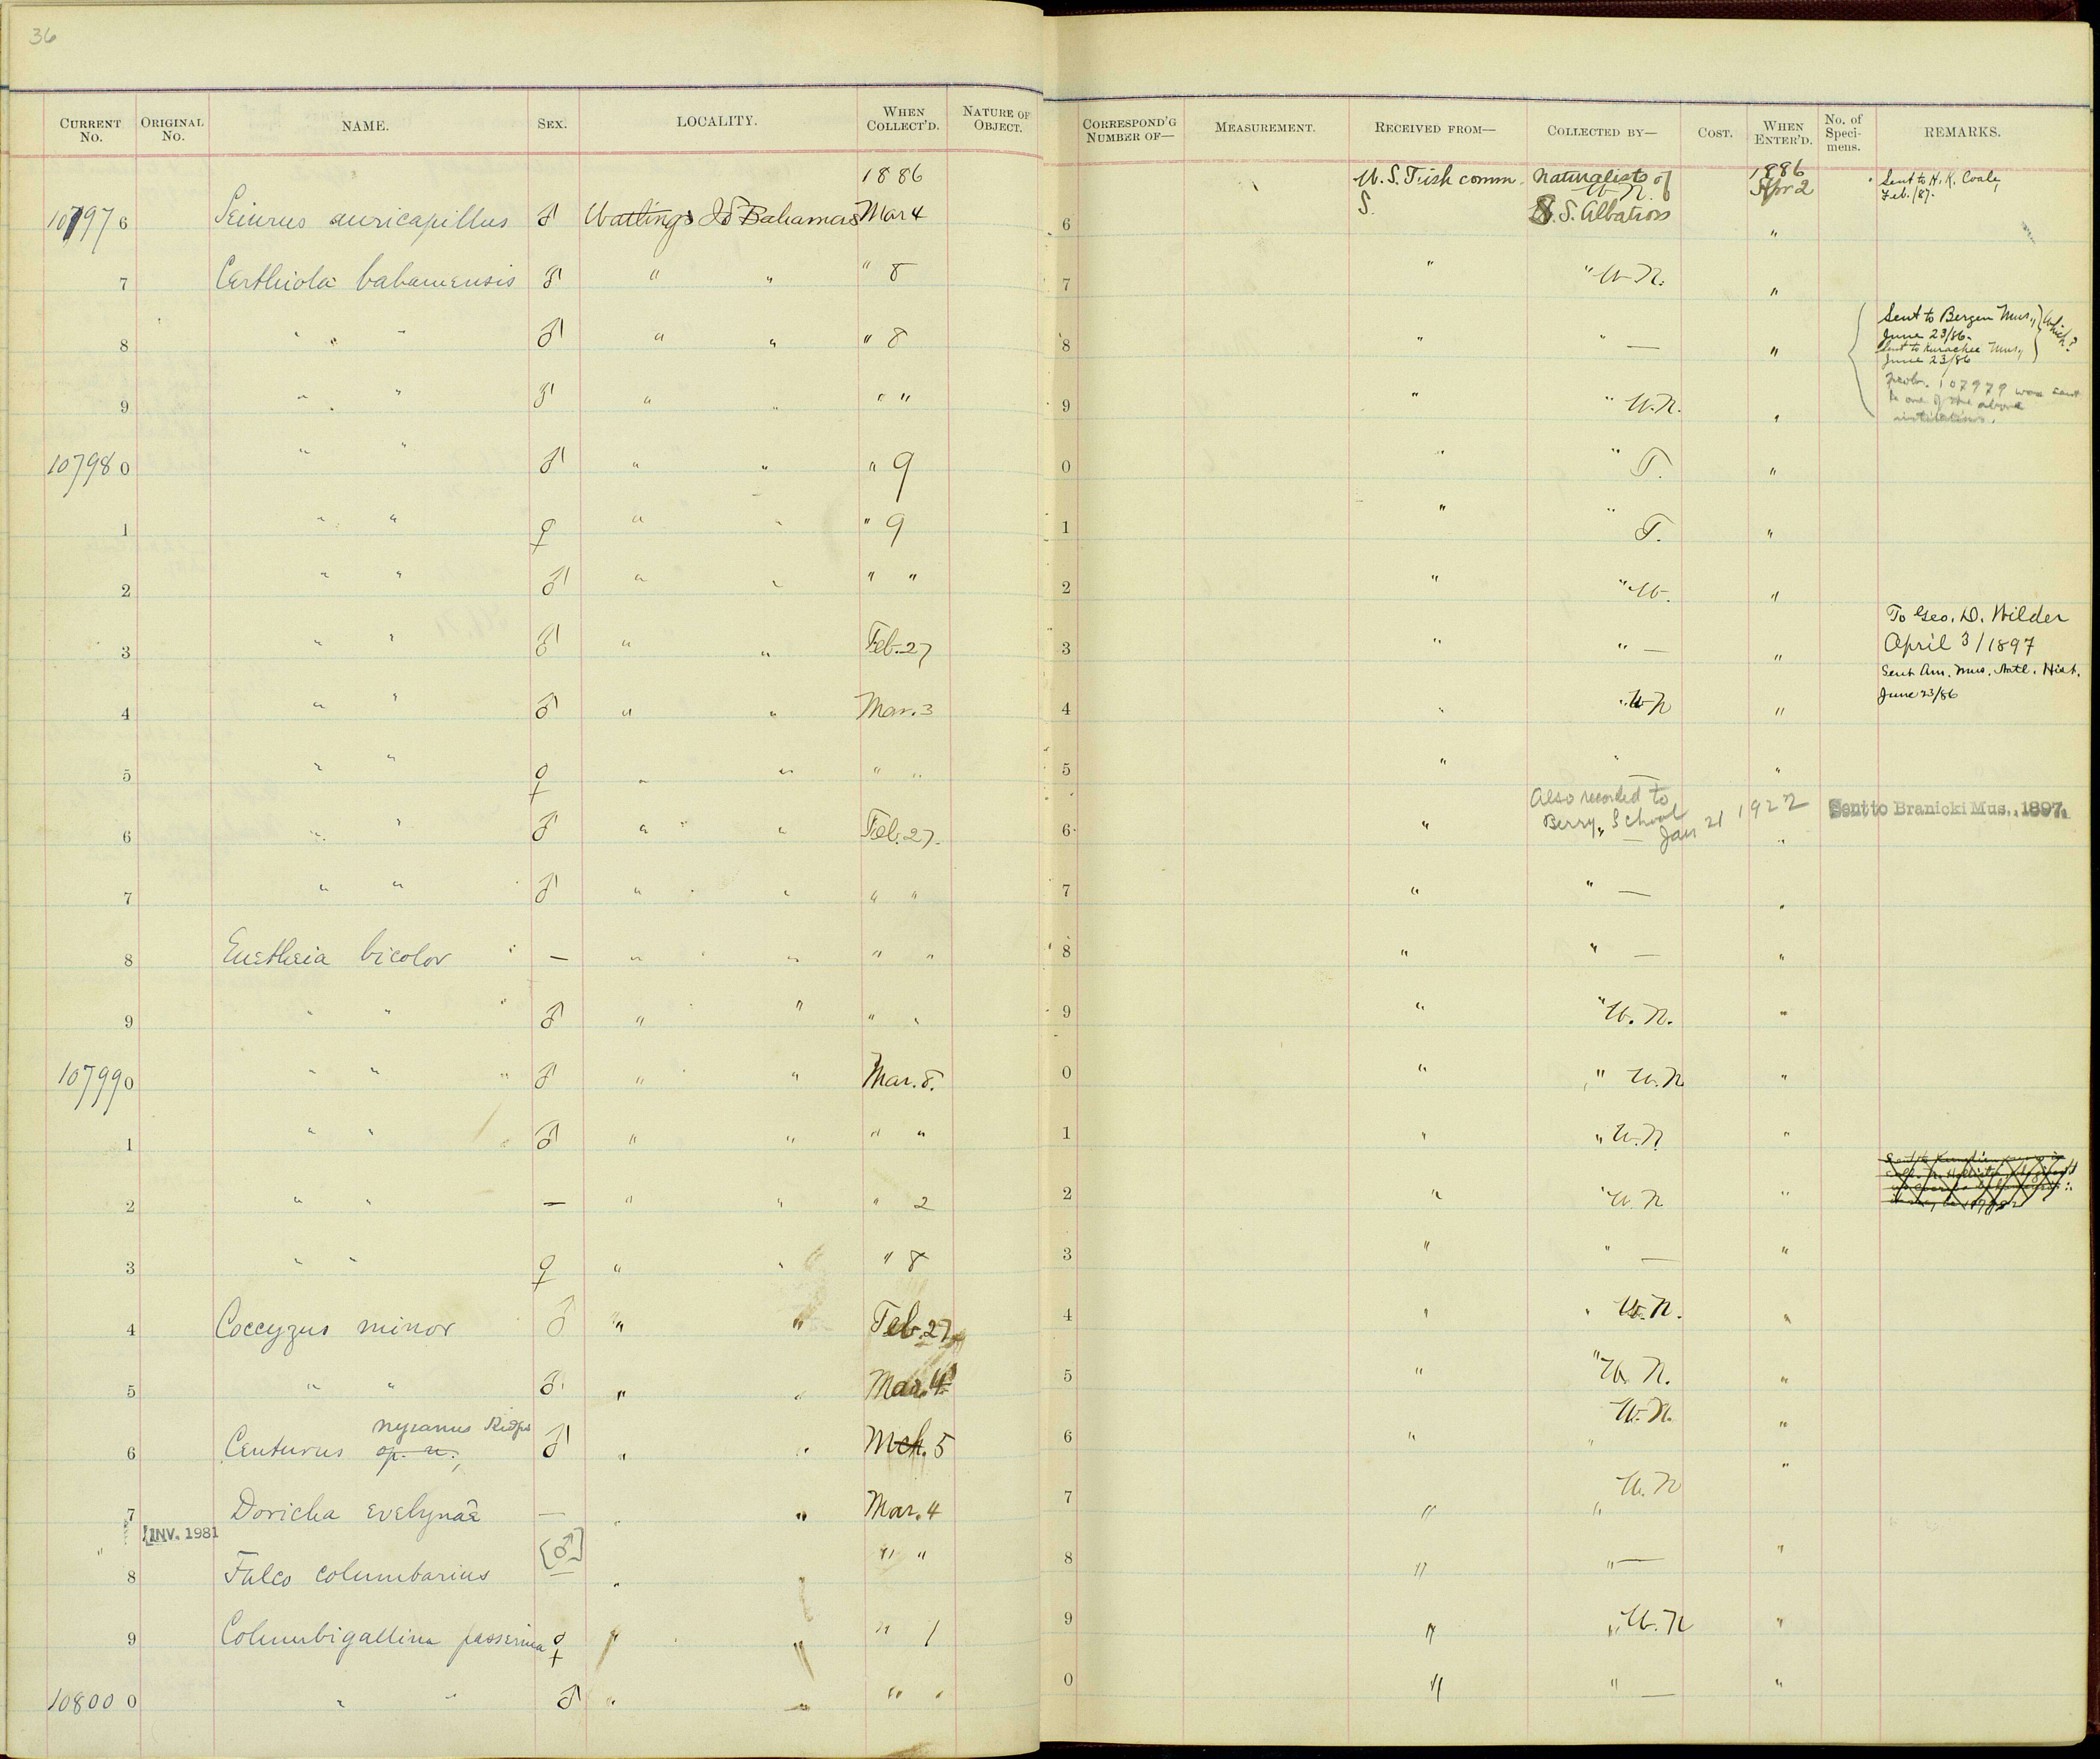 36
CURRENT No. ORIGINAL No. NAME. SEX. LOCALITY. WHEN COLLECT'D. NATURE OF OBJECT. CORRESPOND'G NUMBER OF— MEASUREMENT. RECEIVED FROM— COLLECTED BY— COST. WHEN ENTER'D. No. of Specimens. REMARKS.
1886 U.S. Fish comm. Naturalists of 1886 Sent to H. K. Coale,
W. N. Apr 2 Feb. /87.
107976 Seiurus auricapillus ♂ Watlings Id Bahamas Mar 4 6 S. S. Albatross "
7 Certhiola bahamensis ♂ " " " 8 7 " " W. N. "
Sent to Bergen Mus., Which?
June 23/86.
8 " " " ♂ " " " 8 8 " " — "
Sent to Kurachee Mus.,
June 23/86
Prob. 107979 was sent
to one of the above
institutions.
9 " " " ♂ " " " " 9 " " W. N. "
107980 " " ♂ " " " 9 0 " " T. "
1 " " ♀ " " " 9 1 " " T. "
2 " " ♂ " " " " 2 " " W. "
To Geo. D. Wilder
3 " " ♂ " " Feb. 27 3 " " — " April 3/1897
Sent Am. Mus. Natl. Hist.
4 " " ♂ " " Mar. 3 4 " " W N " June 23/86
5 " " ♀ " " " " 5 " " — "
Also recorded to
Berry School Jan 21 1922
6 " " ♂ " " Feb. 27. 6 " " — " Sent to Branicki Mus., 1897.
7 " " ♂ " " " " 7 " " — "
8 Euetheia bicolor — " " " " 8 " " — "
9 " " ♂ " " " " 9 " " W. N. "
107990 " " " ♂ " " Mar. 8. 0 " " W. N "
1 " " " ♂ " " " " 1 " " W. N "
2 " " — " " " 2 2 " " W. N "
3 " " ♀ " " " 8 3 " " — "
4 Coccyzus minor ♂ " " Feb. 27 4 " " W. N. "
5 " " ♂ " " Mar. 4 5 " " W. N. "
nyeanus Ridgw W. N.
6 Centurus sp. n., ♂ " " Mch. 5 6 " " "
7 Doricha evelynae — " " Mar. 4 7 " " W. N "
INV. 1981
8 Falco columbarius [♂] " " " 8 " " — "
9 Columbigallina passerina ♀ " " " 1 9 " " W. N "
108000 " " ♂ " " " " 0 " " — "